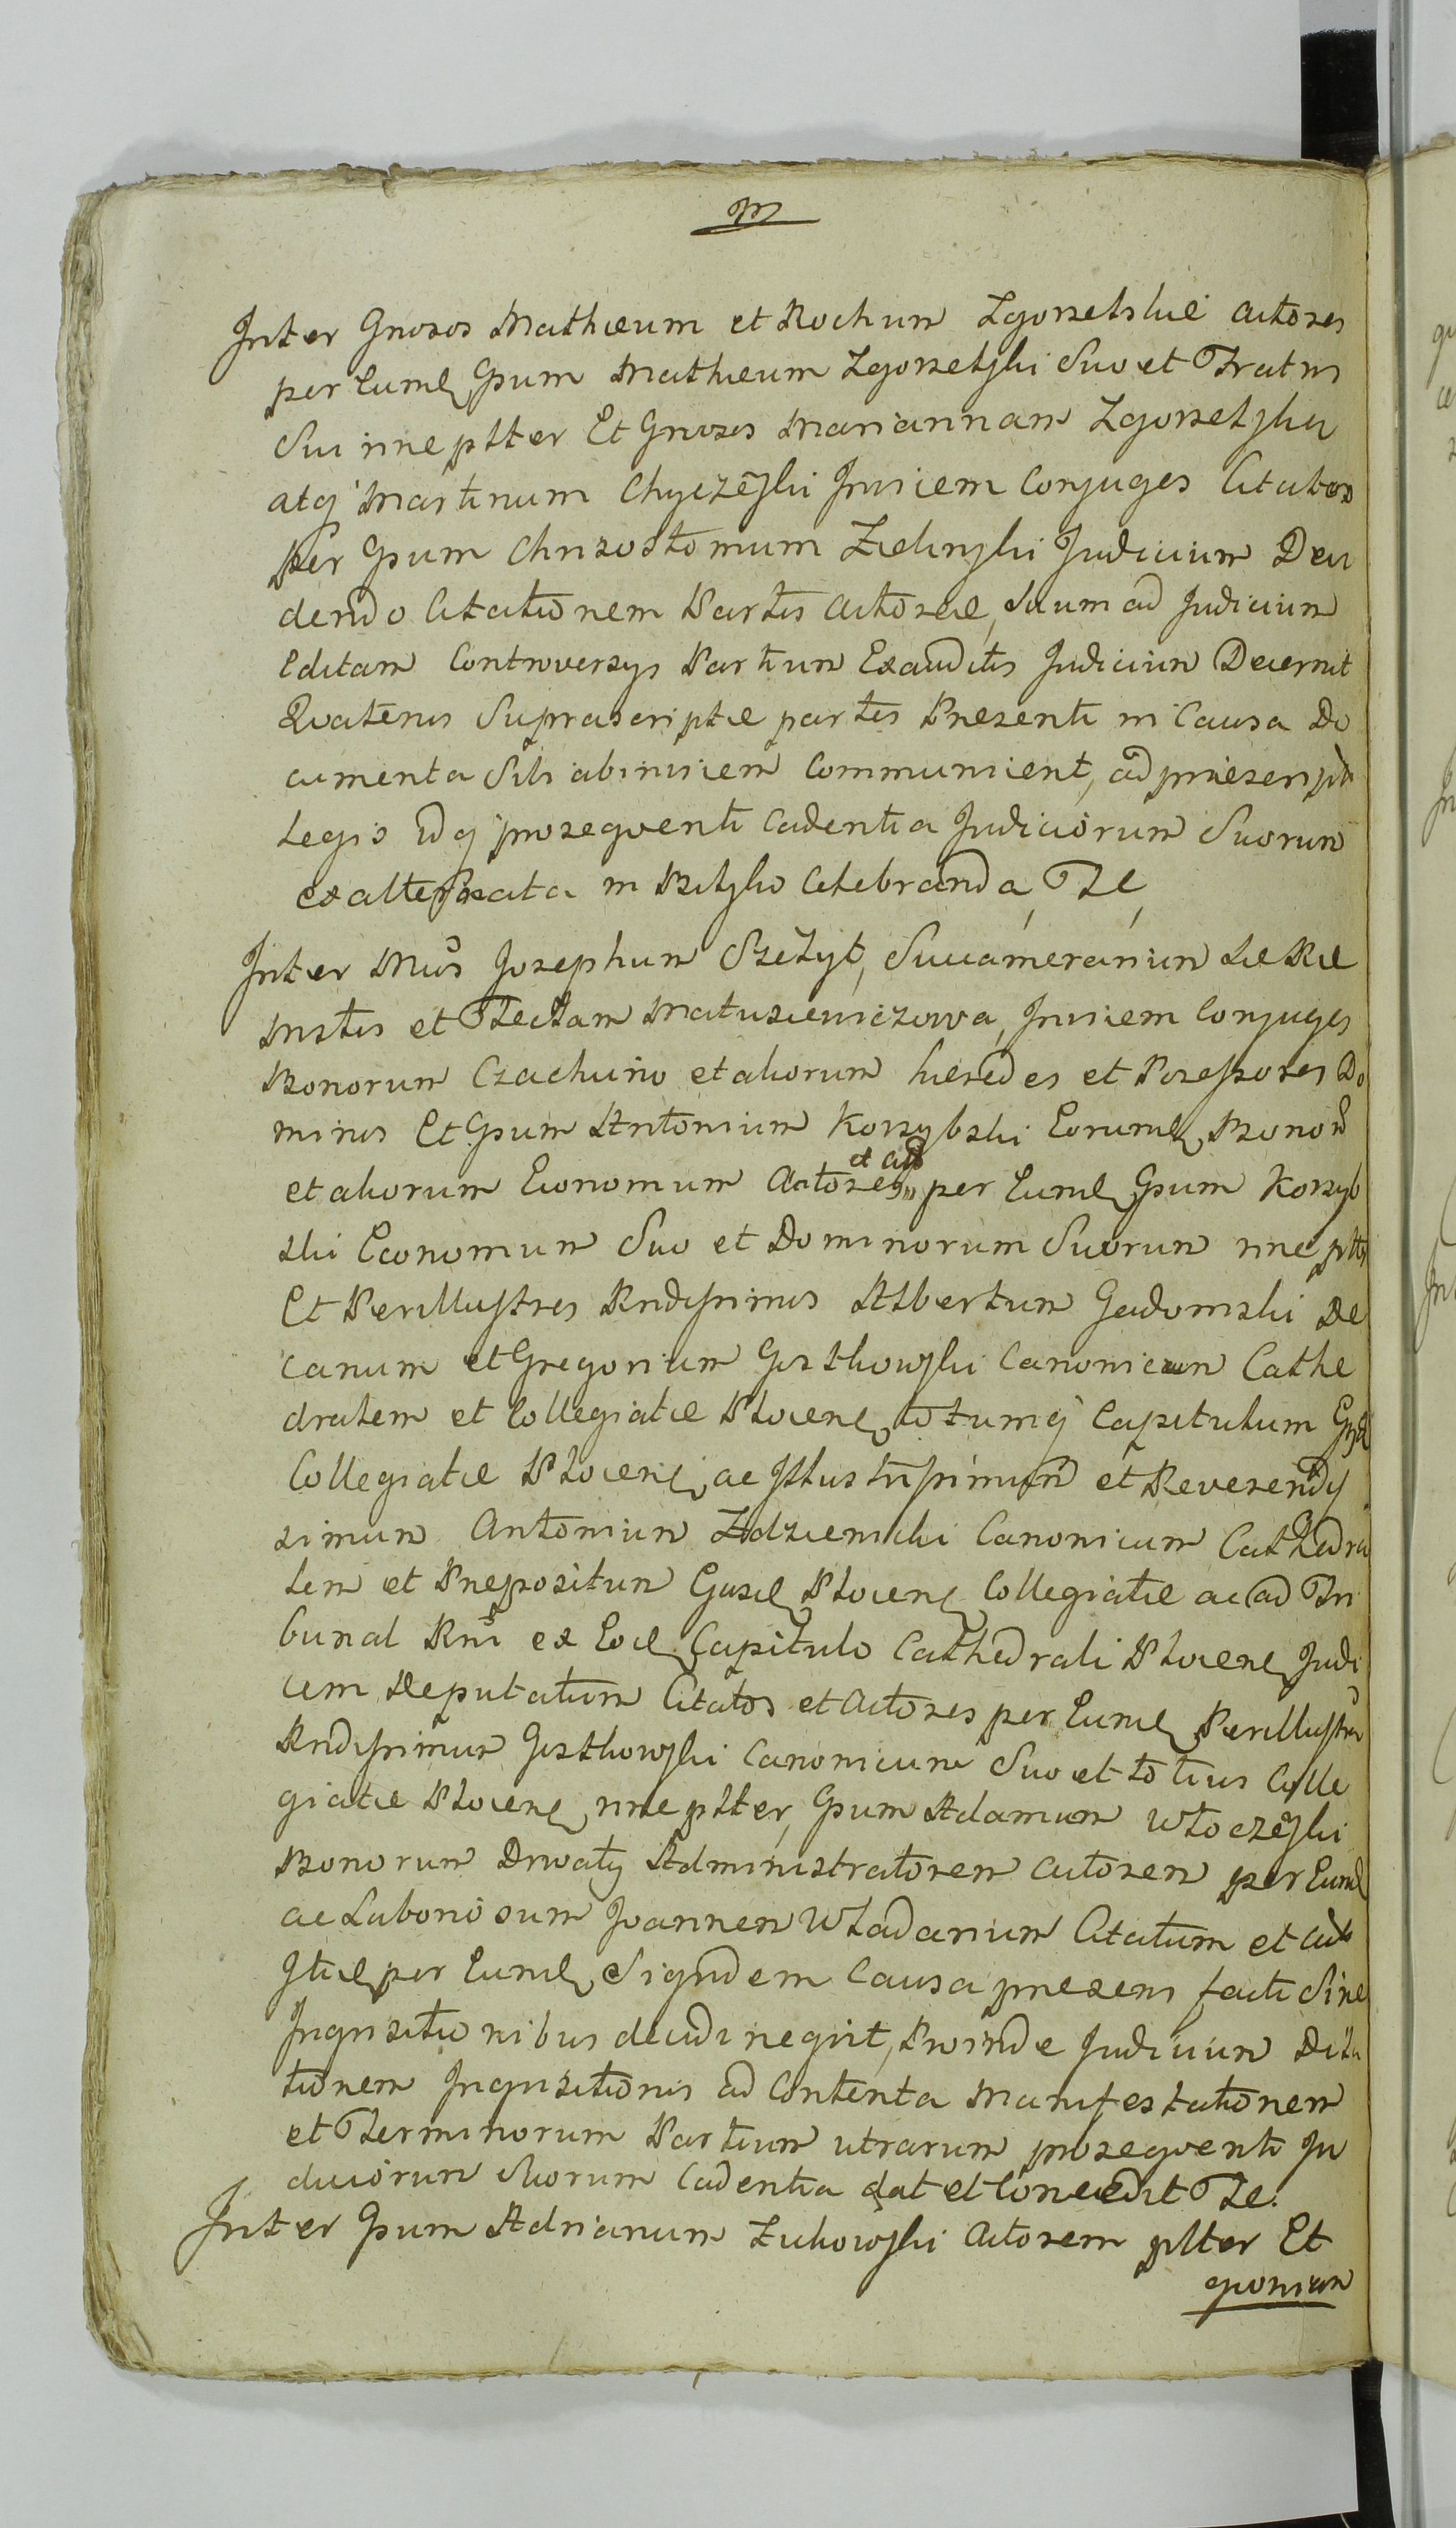 m
Inter Gnosos Mathæum et Rochum Zgorzelskie actores
per Eund Gsum Mathæum Zgorzelski Suo et Fratris
Sui nne pltter Et Gnosos Mariannam Zgorzelska
atq Martinum Chyczeski Invicem Conjuges Citatos
per Gsum Chrizostomum Zielinski Judicium Deu
dendo Citationem Partis Actoreæ, Suum ad Judicium
Editam Controversys Partium Exauditis Judicium Decernit
Quatenus Suprascriptæ partes Presenti in Causa Do
cumenta Sibi abinvicem Communicent, ad præscripta
Legis idq prosequenti Cadentia Judiciorum Suorum
ex alternata in Bielsko Celebranda,
Inter Josephum Szczyt, Succamerarium
et Teclam Matusiewiczowa, Invicem Conjuges
Bonorum Czachurio et aliorum hæredes et Possessores Do
minos Et Gsum Antonium Korzybski Eorund Bonorum
et aliorum Economum Actores et citt per Eund Gsum Korzyb
ski Economum Suo et Dominorum Suorum nne pltter
Et Perillustres Rndissimos Albertum Gadomski De
canum et Gregorium Gosthowski Canonicum Cathe
dralem et Collegiatæ Plocens totumq Capitulum
Collegiatæ Plocens ac Illustrissimum et Reverendis
simum Antonium Zdziemski Canonicum Cathedra
lem et Præpositum Ejusd Plocens Collegiatæ ac ad Tri
bunal Rni ex Eod Capitulo Cathedrali Plocens Judi
cem Deputatum Citatos et Actores per Eund Perillustrem
Rndissimum Gosthowski Canonicum Suo et totius Colle
giatæ Plocens nne pltter, Gsum Adamum Wloczeski
Bonorum Drwaly Administratorem Actorem per Eund
ac Laboriosum Joannem Wladarium Citatum et
per Eund, Siquidem Causa præsens facti Sine
Inquisitionibus decidi nequit, Proinde Judicium Dila
tionem Inquisitionis ad Contenta Manifestationem
et Terminorum Partium utrarum prosequenti Ju
diciorum Suorum Cadentia dat et Concedit
Inter Gsum Adrianum Zukowski Actorem pltter Et